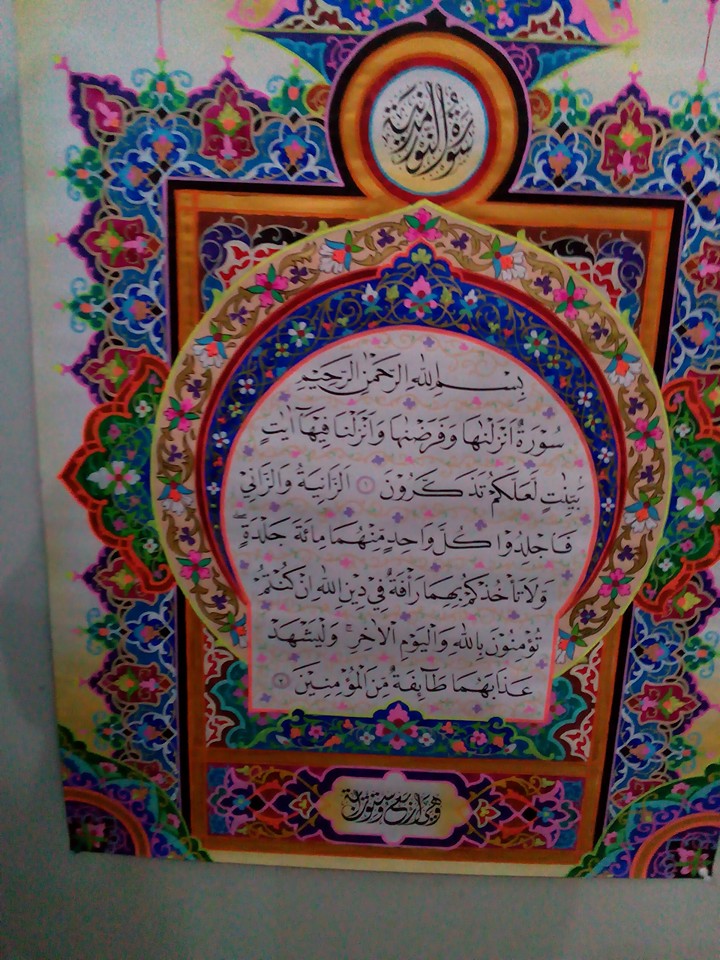 سورة النور مدنية
بِسْمِ اللهِ الرَّحْمٰنِ الرَّحِيْمِ
سُوْرَةٌ اَنْزَلْنٰهَا وَفَرَضْنٰهَا وَاَنْزَلْنَا فِيْهَآ اٰيٰتٍ
بَيِّنٰتٍ لَعَلَّكُمْ تَذَكَّرُوْنَ ١ اَلزَّانِيَةُ وَالزَّانِيْ
فَاجْلِدُوْا كُلَّ وَاحِدٍ مِّنْهُمَا مِائَةَ جَلْدَةٍ
وَلَا تَأْخُذْكُمْ بِهِمَا رَأْفَةٌ فِيْ دِيْنِ اللهِ اِنْ كُنْتُمْ
تُؤْمِنُوْنَ بِاللهِ وَالْيَوْمِ الْاٰخِرِ ۚ وَلْيَشْهَدْ
عَذَابَهُمَا طَآئِفَةٌ مِّنَ الْمُؤْمِنِيْنَ ٢
وهي اربع وستون اية